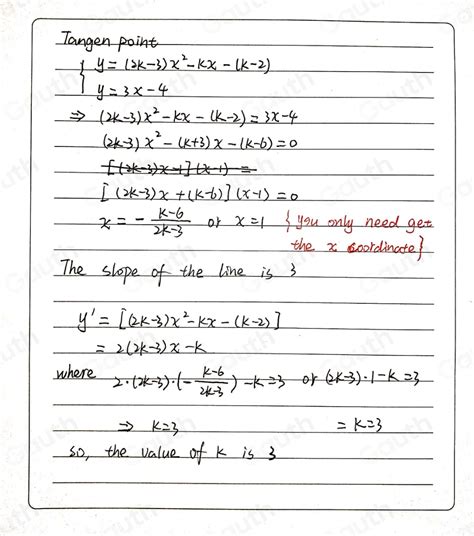 Tangen point
y = (2k-3)x² - kx - (k-2)
y = 3x-4
⇒ (2k-3)x² - kx - (k-2) = 3x-4
(2k-3)x² - (k+3)x - (k-6) = 0
[(2k-3)x-1](x-1) =
[(2k-3)x + (k-6)](x-1) = 0
x = - (k-6)/(2k-3) or x=1 {you only need get
the x coordinate}
The slope of the line is 3
y' = [(2k-3)x² - kx - (k-2)]
= 2(2k-3)x - k
where 2·(2k-3)·(-(k-6)/(2k-3)) - k = 3 or (2k-3)·1 - k = 3
⇒ k=3 = k=3
so, the value of k is 3